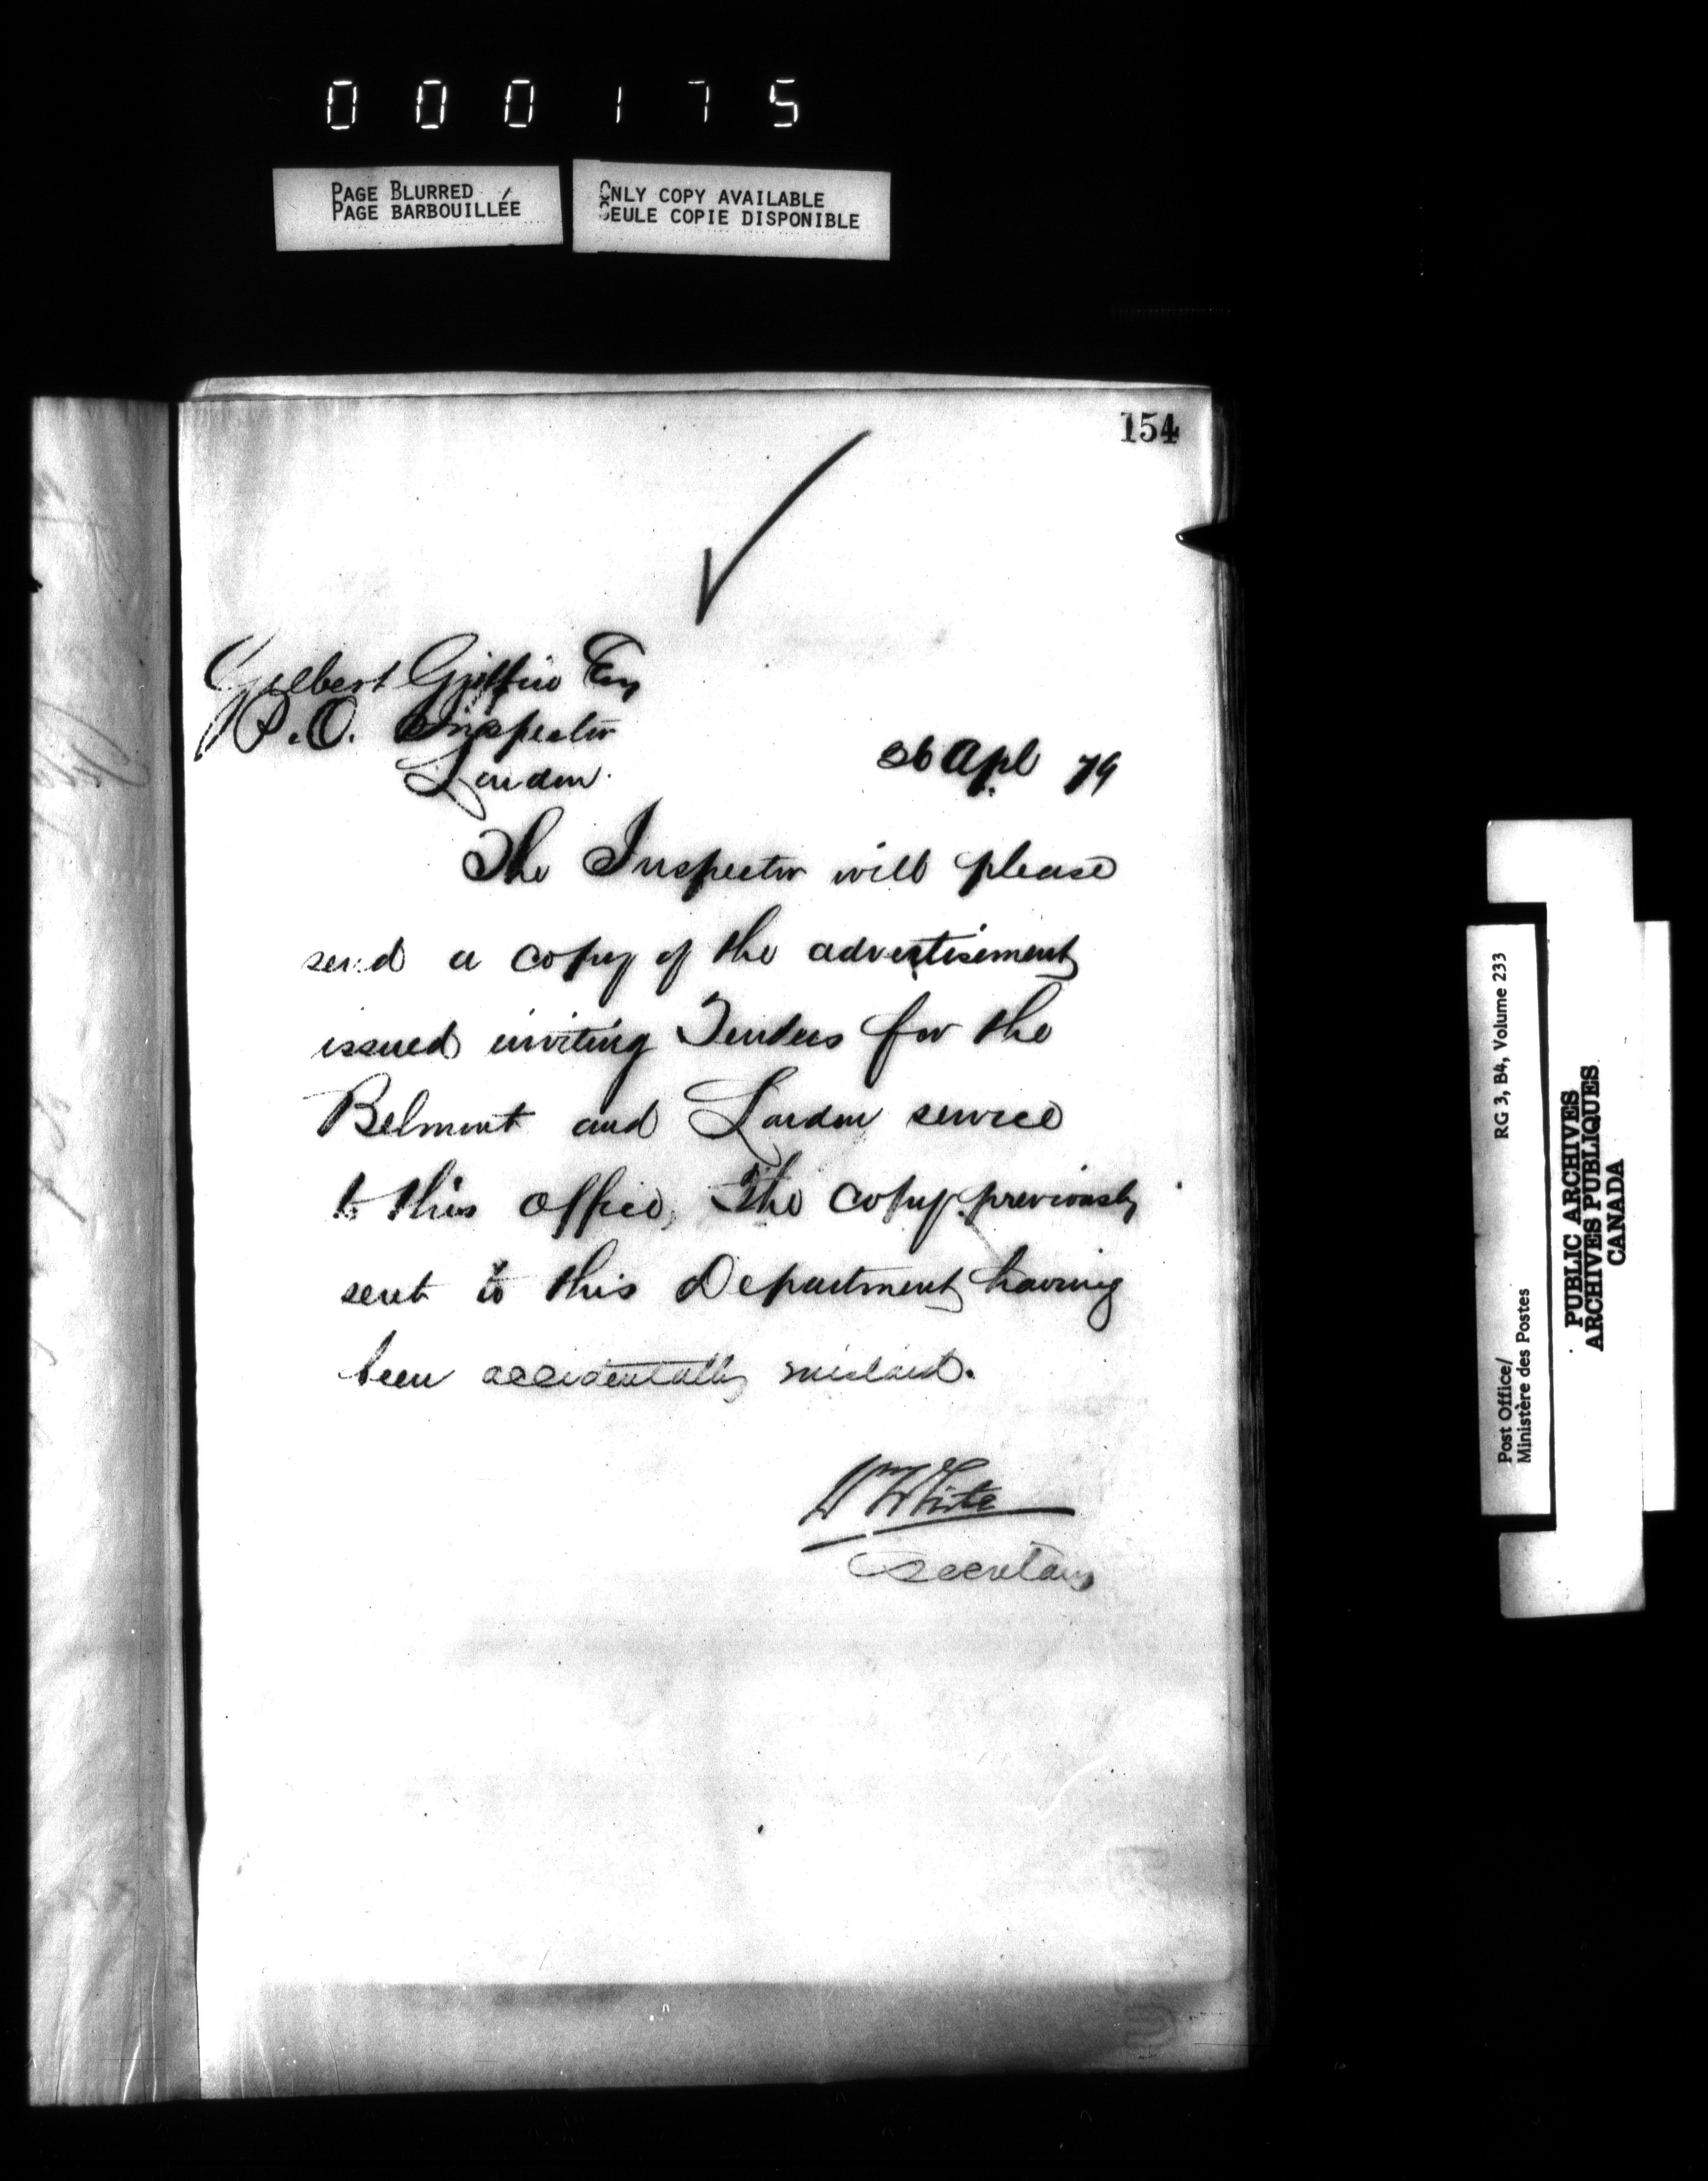 000175
PAGE BLURRED
PAGE BARBOUILLÉE
ONLY COPY AVAILABLE
SEULE COPIE DISPONIBLE
154
Gilbert Griffin Esq
P.O. Inspector
London.
26 Apl 79
The Inspector will please
send a copy of the advertisement
issued inviting Tenders for the
Belmont and London service
to this office, the copy previously
sent to this Department having
been accidentally mislaid.
Wm White
Secretary
Post Office/
Ministère des Postes
RG 3, B4, Volume 233
PUBLIC ARCHIVES
ARCHIVES PUBLIQUES
CANADA